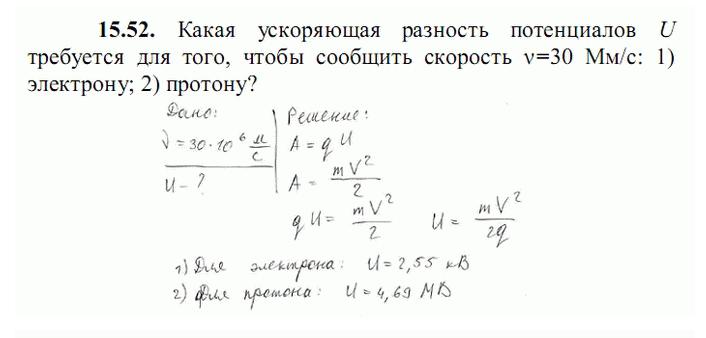 15.52. Какая ускоряющая разность потенциалов U
требуется для того, чтобы сообщить скорость v=30 Мм/с: 1)
электрону; 2) протону?
Дано:
V = 30·10⁶ м/с
U - ?
Решение:
A = qU
A = mV²/2
qU = mV²/2 U = mV²/2q
1) Для электрона: U = 2,55 кВ
2) Для протона: U = 4,69 МВ